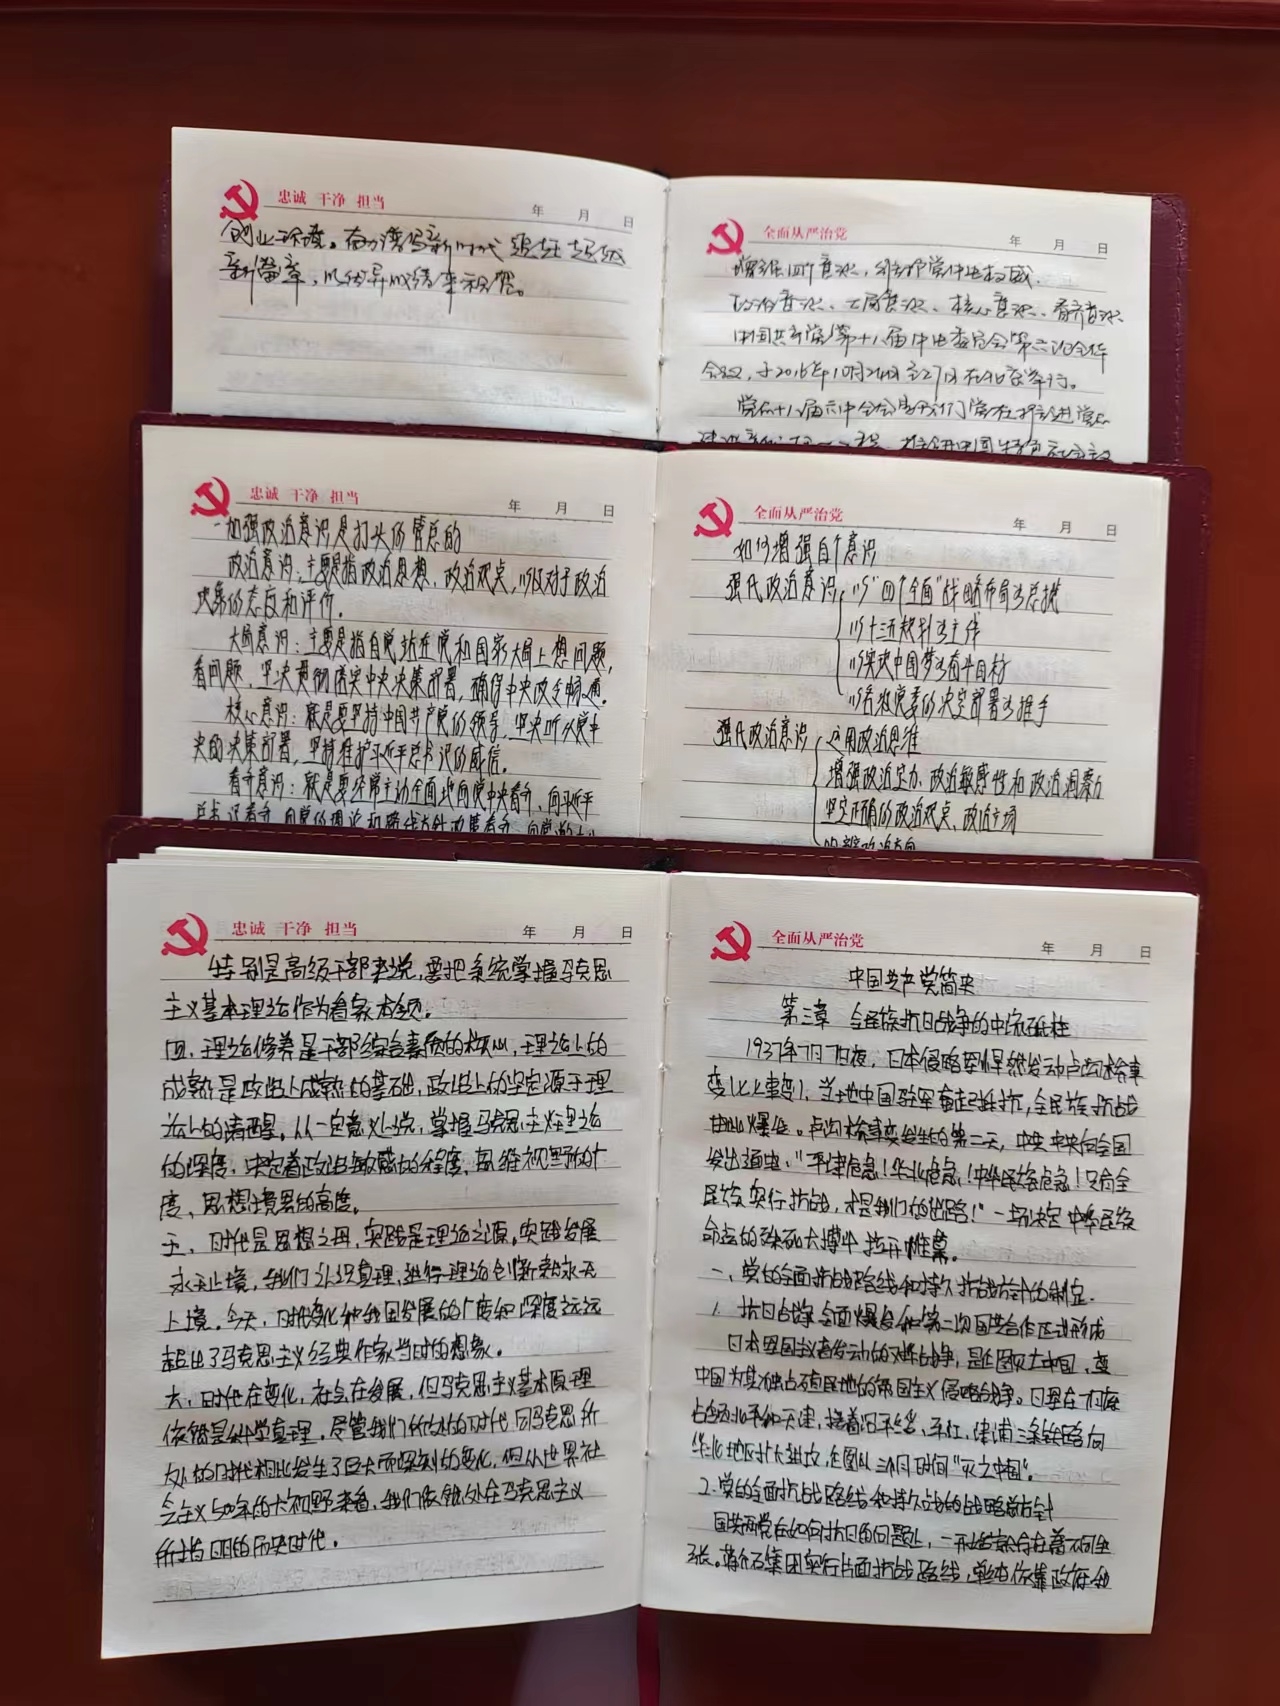 忠诚 干净 担当
年 月 日
创业环境。奋力谱写新时代追赶超越
新篇章，以优异成绩来祝贺。
全面从严治党
年 月 日
增强四个意识，维护党中央权威.
政治意识、大局意识、核心意识、看齐意识
中国共产党第十八届中央委员会第六次全体
会议，于2016年10月24日至27日在北京举行。
党的十八届六中全会是我们党在推进党的
忠诚 干净 担当
年 月 日
一加强政治意识是打头的管总的
政治意识：主要是指政治思想，政治观点，以及对于政治
决策的态度和评价.
大局意识：主要是指自觉站在党和国家大局上想问题，
看问题，坚决贯彻落实中央决策部署，确保中央政令畅通。
核心意识：就是要坚持中国共产党的领导，坚决听从党中
央的决策部署，坚持维护习近平总书记的威信。
看齐意识：就是要经常主动全面地向党中央看齐，向习近平
总书记看齐，向党的理论和路线方针政策看齐，向党的
全面从严治党
年 月 日
如何增强自个意识
强化政治意识 以"四个全面"战略布局为总揽
以十三五规划为主体
以实现中国梦为奋斗目标
以各级党委的决定部署为推手
强化政治意识 运用政治思维
增强政治定力、政治敏感性和政治洞察力
坚定正确的政治观点、政治立场
忠诚 干净 担当
年 月 日
特别是高级干部来说，要把系统掌握马克思
主义基本理论作为看家本领.
四、理论修养是干部综合素质的核心，理论上的
成熟是政治上成熟的基础，政治上的坚定源于理
论上的清醒。从一定意义上说，掌握马克思主义理论
的深度，决定着政治敏感的程度、思维视野的广
度、思想境界的高度。
五、时代是思想之母，实践是理论之源。实践发展
永无止境，我们认识真理，进行理论创新就永无
止境。今天，时代变化和我国发展的广度和深度远远
超出了马克思主义经典作家当时的想象。
六、时代在变化，社会在发展，但马克思主义基本原理
依然是科学真理，尽管我们所处的时代同马克思所
处的时代相比发生了巨大而深刻的变化，但从世界社
会主义500年的大视野来看，我们依然处在马克思主义
所指明的历史时代。
全面从严治党
年 月 日
中国共产党简史
第三章 全民族抗日战争的中流砥柱
1937年7月7日夜，日本侵略军悍然发动卢沟桥事
变(七七事变)，当地中国驻军奋起抵抗，全民族抗战
由此爆发。卢沟桥事变发生的第二天，中共中央向全国
发出通电："平津危急！华北危急！中华民族危急！只有全
民族实行抗战，才是我们的出路！"一场决定中华民族
命运的殊死大搏斗拉开帷幕。
一、党的全面抗战路线和持久抗战方针的制定.
1. 抗日战争全面爆发和第二次国共合作正式形成
日本帝国主义者发动的对华战争，是企图灭亡中国，变
中国为其独占殖民地的帝国主义侵略战争。日军在相继
占领北平和天津，接着沿平绥、平汉、津浦三条铁路向
华北地区扩大进攻，企图以三个月时间"灭亡中国"。
2.党的全面抗战路线和持久战的战略总方针
国共两党在如何抗日的问题上，一开始就存在着不同主
张。蒋介石集团实行片面抗战路线，单纯依靠政府和